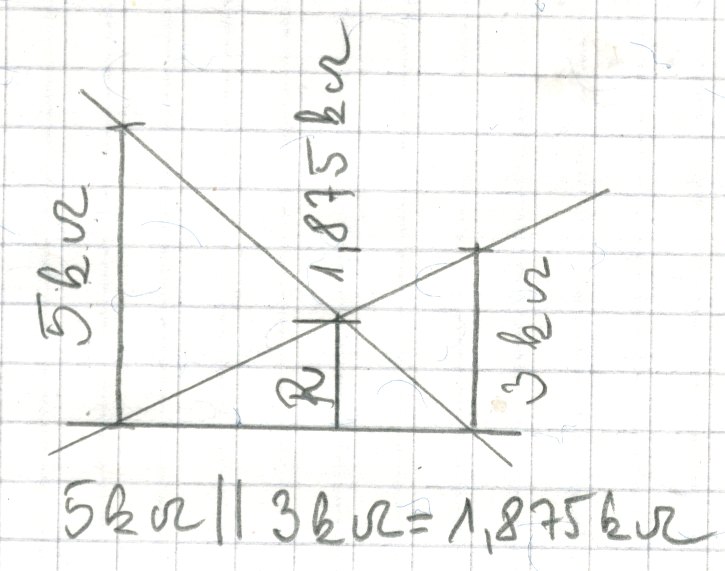 5kΩ
1,875kΩ
R
3kΩ
5kΩ || 3kΩ = 1,875kΩ